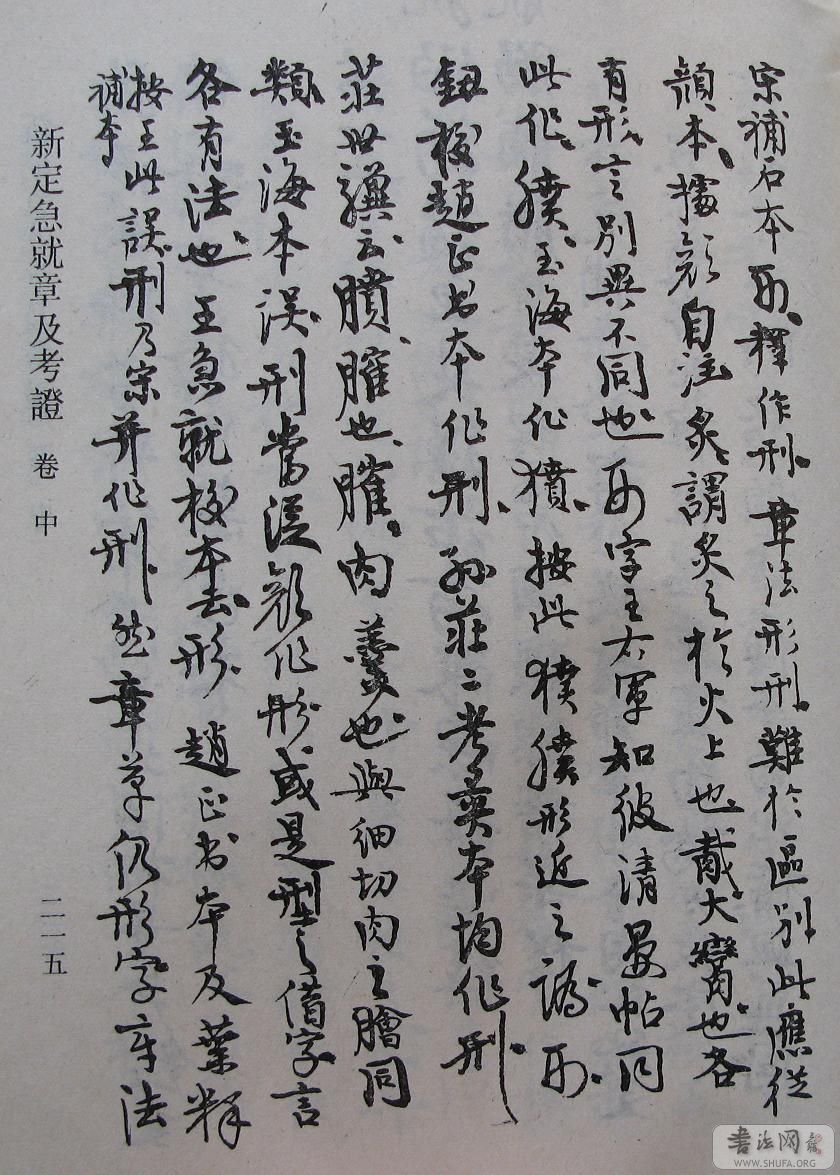 宋補石本𠛬、釋作刑。章法形刑、難於區別、此應從
顏本、據顏自注、炙、謂炙之於火上也、胾、大臠也、各
有形、言別異不同也。字王右軍知彼清晏帖同
此作、膹、玉海本作獖、按此獖膹形近之譌、
鈕校趙正书本作刑、孫莊二考異本均作刑、
莊世驥云、膹、臛也、臛、肉羹也、與細切肉之膾同
類、玉海本誤、刑當從顏作形、或是型之借字、言
各有法也、王急就校本云、形、趙正书本及葉釋
補本
按王此誤、刑乃宋并作刑、然章草仍形字章法
新定急就章及考證 卷中 二一五
書法网
WWW.SHUFA.ORG